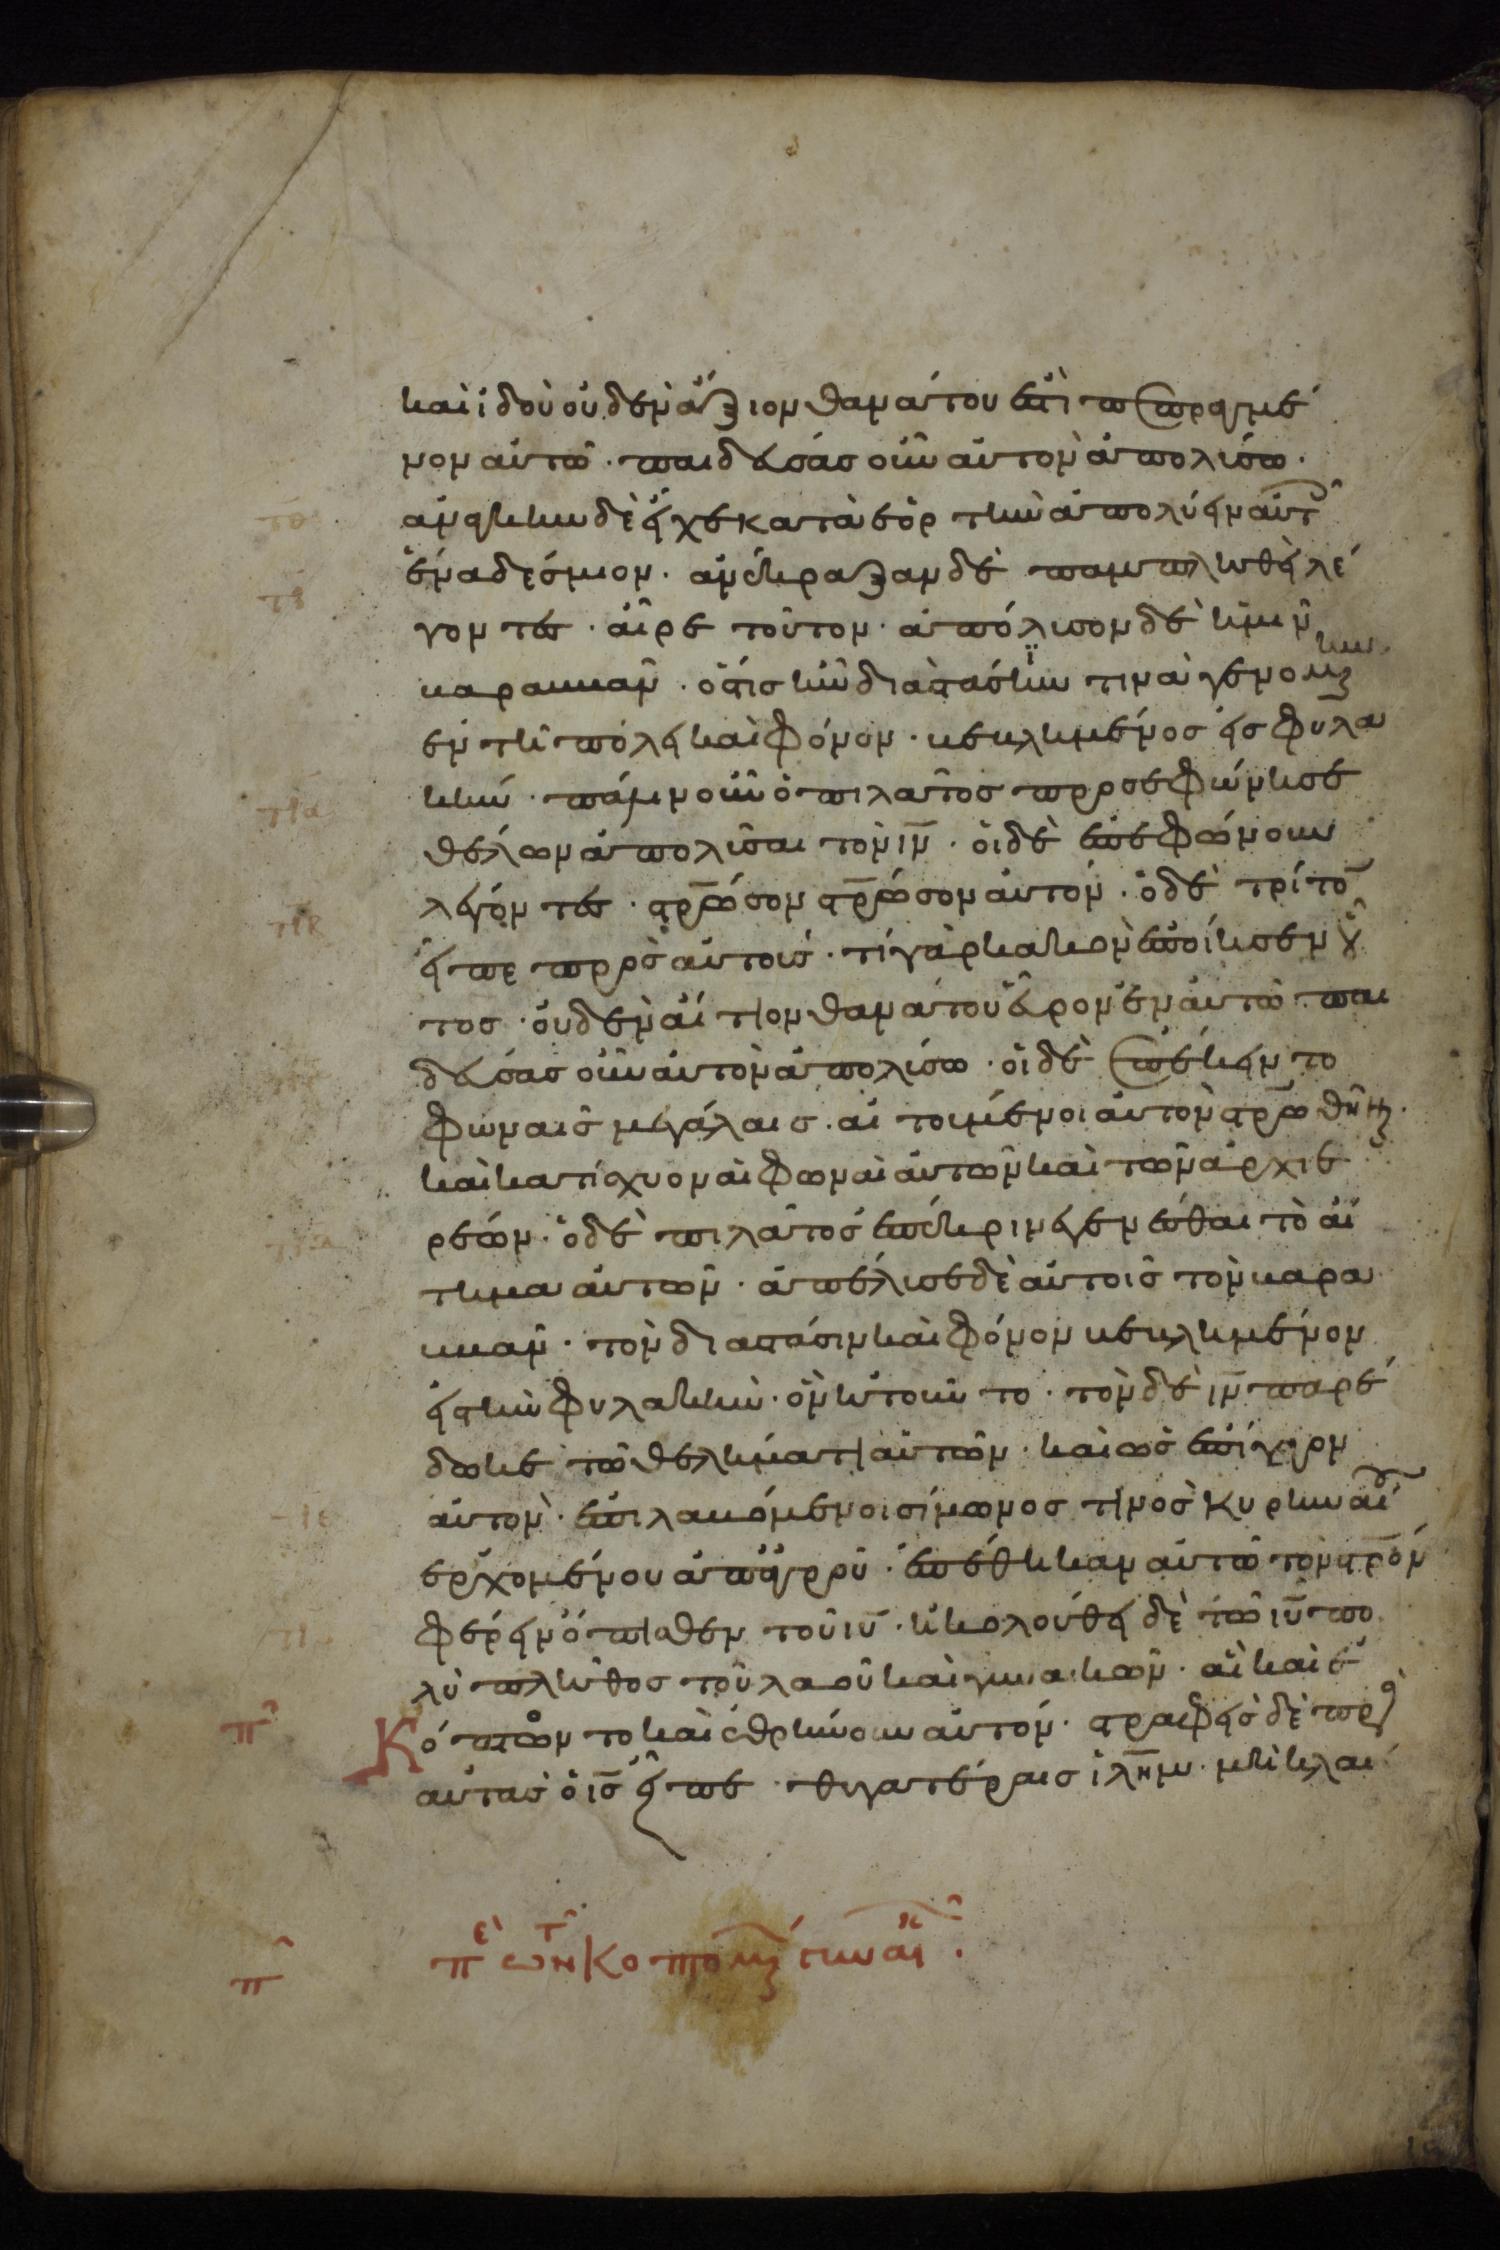 καὶ ἰδοὺ οὐδὲν ἄξιον θανάτου ἐστὶ πεπραγμέ
νον αὐτῶ· παιδεύσας οὖν αὐτὸν ἀπολύσω·
ἀνάγκην δὲ εἶχε κατὰ ἑορτὴν ἀπολύειν αὐτοῖς
ἕνα δέσμιον· ἀνέκραξαν δὲ παμπληθεὶ λέ
γοντες· αἶρε τοῦτον· ἀπόλυσον δὲ ἡμῖν
βαραββᾶν· ὅστις ἦν διὰ στάσιν τινὰ γενομένην
ἐν τῆ πόλει καὶ φόνον· βεβλημένος εἰς φυλα
κήν· πάλιν οὖν ὁ πιλᾶτος προσεφώνησε
θέλων ἀπολῦσαι τὸν ιν· οἱ δὲ ἐπεφώνουν
λέγοντες· στρωσον στρωσον αὐτόν· ὁ δὲ τρίτον
εἶπε πρὸς αὐτούς· τί γὰρ κακὸν ἐποίησεν οὗ
τος· οὐδὲν αἴτιον θανάτου εὗρον ἐν αὐτῶ· παι
δεύσας οὖν αὐτὸν ἀπολύσω· οἱ δὲ ἐπέκειντο
φωναῖς μεγάλαις· αἰτούμενοι αὐτὸν στρωθῆναι·
καὶ κατίσχυον αἱ φωναὶ αὐτῶν καὶ τῶν ἀρχιε
ρέων· ὁ δὲ πιλᾶτος ἐπέκρινε γενέσθαι τὸ αἴ
τημα αὐτῶν· ἀπέλυσε δὲ αὐτοῖς τὸν βαρα
ββᾶν· τὸν διὰ στάσιν καὶ φόνον βεβλημένον
εἰς τὴν φυλακήν· ὃν ἠτοῦντο· τὸν δὲ ιν παρέ
δωκε τῶ θελήματι αὐτῶν· καὶ ὡς ἀπήγαγον
αὐτόν· ἐπιλαβόμενοι σίμωνος τινὸς κυρηναίου
ἐρχομένου ἀπ' ἀγροῦ· ἐπέθηκαν αὐτῶ τὸν στρον
φέρειν ὄπισθεν τοῦ ιυ· ἠκολούθει δὲ τῶ ιυ πο
λὺ πλῆθος τοῦ λαοῦ καὶ γυναικῶν· αἳ καὶ ἐ
Κόπτοντο καὶ ἐθρήνουν αὐτόν· στραφεὶς δὲ πρὸς
αὐτὰς ὁ ις εἶπε· θυγατέρες ιλημ· μὴ κλαί
π περὶ τῶν κοπτομένων γυναικῶν·